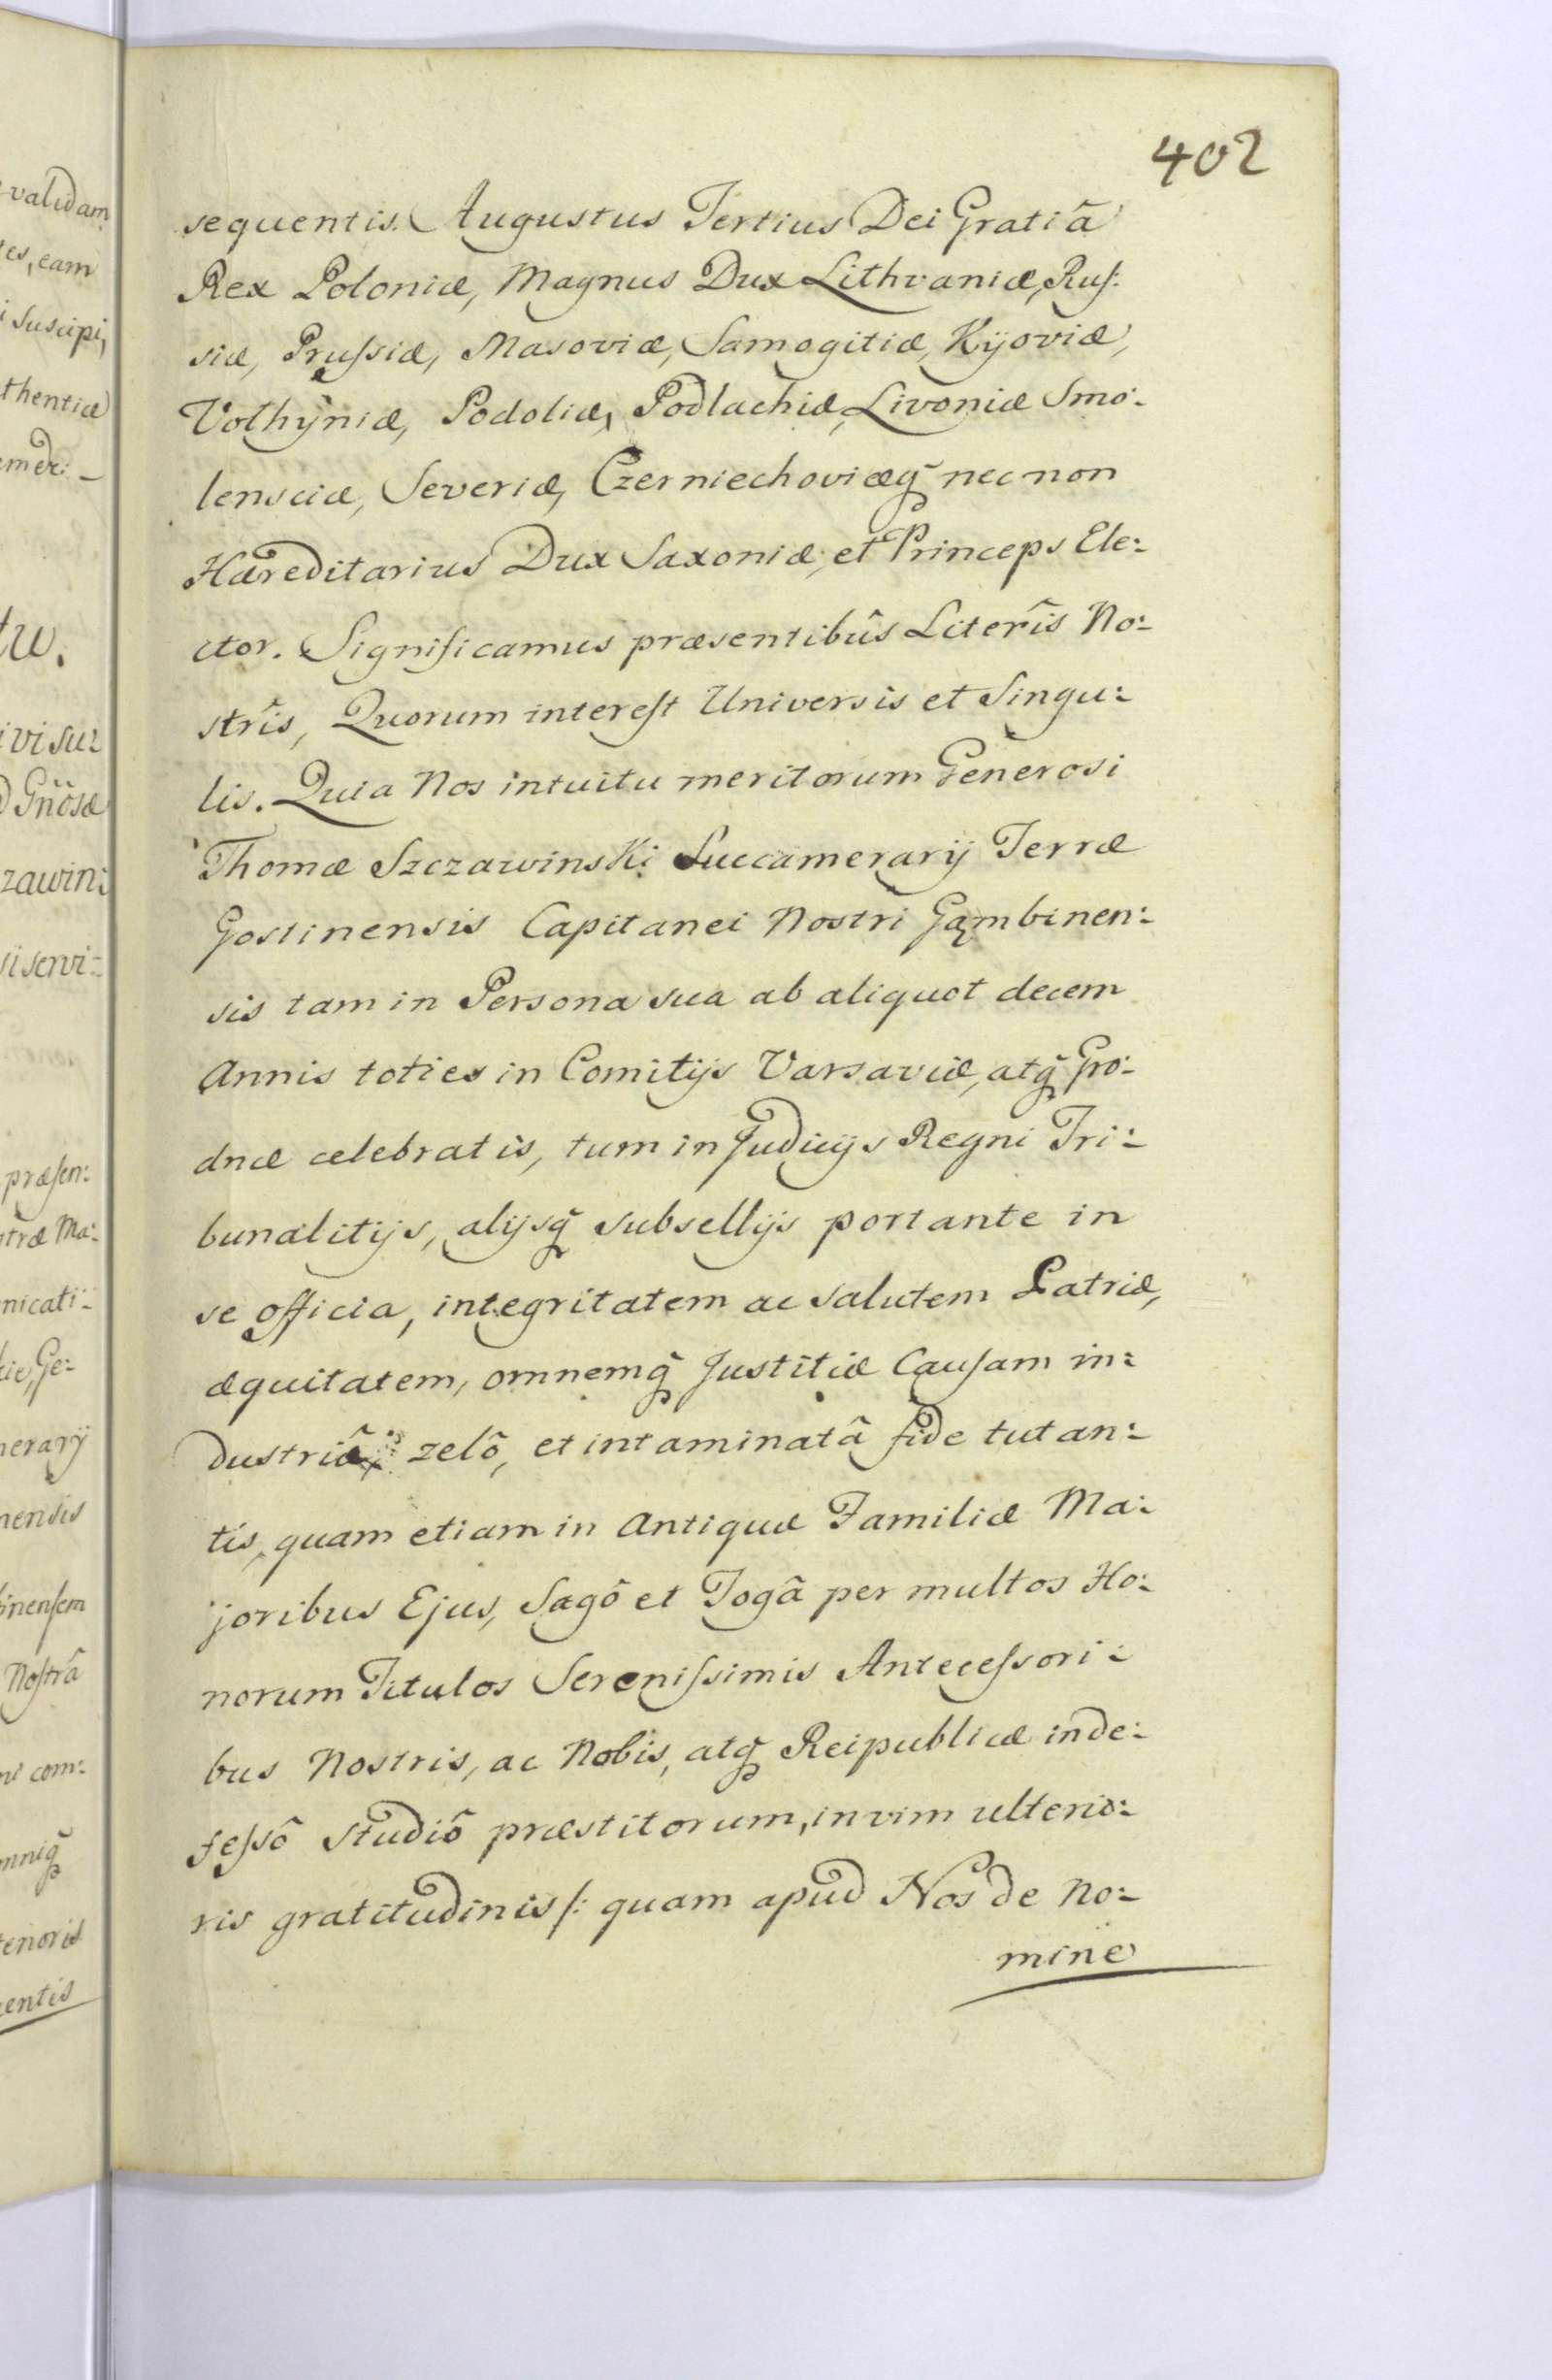 402
sequentis. Augustus Tertius Dei Gratiâ
Rex Poloniæ, Magnus Dux Lithvaniæ, Rus:
siæ, Prussiæ, Masoviæ, Samogitiæ, Kijoviæ,
Volhÿniæ, Podoliæ, Podlachiæ, Livoniæ Smo:
lensciæ, Severiæ, Czerniechoviæq̃ nec non
Hæreditarius Dux Saxoniæ, et Princeps Ele:
ctor. Significamus præsentibûs Literîs No:
strîs, Quorum interest Universis et Singu:
lis. Quia Nos intuitu meritorum Generosi
Thomæ Szczawinski Succamerarij Terræ
Gostinensis Capitanei Nostri Gąmbinen:
sis tam in Persona sua ab aliquot decem
Annis toties in Comitijs Varsaviæ, atq̃ Gro:
dnæ celebratis, tum in Judicijs Regni Tri:
bunalitijs, alijsq̃ subsellijs portante in
se officia, integritatem ac salutem Patriæ,
æquitatem, omnemq̃ Justitiæ Causam in:
dustriâ, zelô, et intaminatâ fide tutan:
tis, quam etiam in Antiquæ Familiæ Ma:
joribus Ejus, Sagô et Togâ per multos Ho:
norum Titulos Serenissimis Antecessori:
bus Nostris, ac Nobis, atq̃ Reipublicæ inde:
fessô studiô præstitorum, in vim ulterio:
ris gratitudinis /: quam apud Nos de no:
mine
validam
tes, eam
i suscipi,
thenticæ
emer:
tu.
ivisu:
Gnösæ
zawin:
si servi:
præsen:
stræ Ma:
nicati:
Ge:
merarij
nensis
binensem
Nostrâ
ni com:
omniq̃
terioris
entis